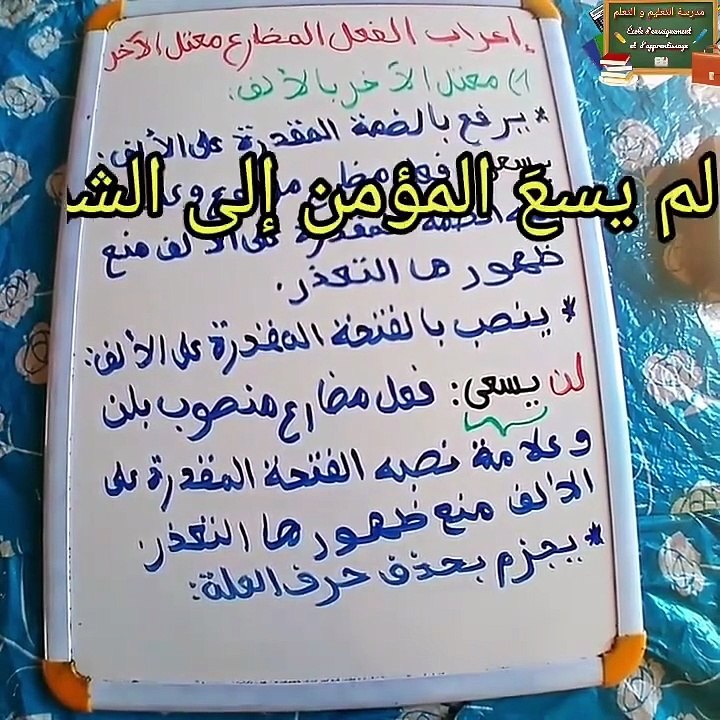 مدرسة التعليم و التعلم
École d'enseignement
et d'apprentissage
إعراب الفعل المضارع معتل الآخر
1) معتل الآخر بالألف:
* يرفع بالضمة المقدرة على الألف:
يسعى
لم يسعَ المؤمن إلى الشـ
على الألف منع
ظهورها التعذر.
* ينصب بالفتحة المقدرة على الألف:
لن يسعى: فعل مضارع منصوب بلن
وعلامة نصبه الفتحة المقدرة على
الألف منع ظهورها التعذر.
* يجزم بحذف حرف العلة: